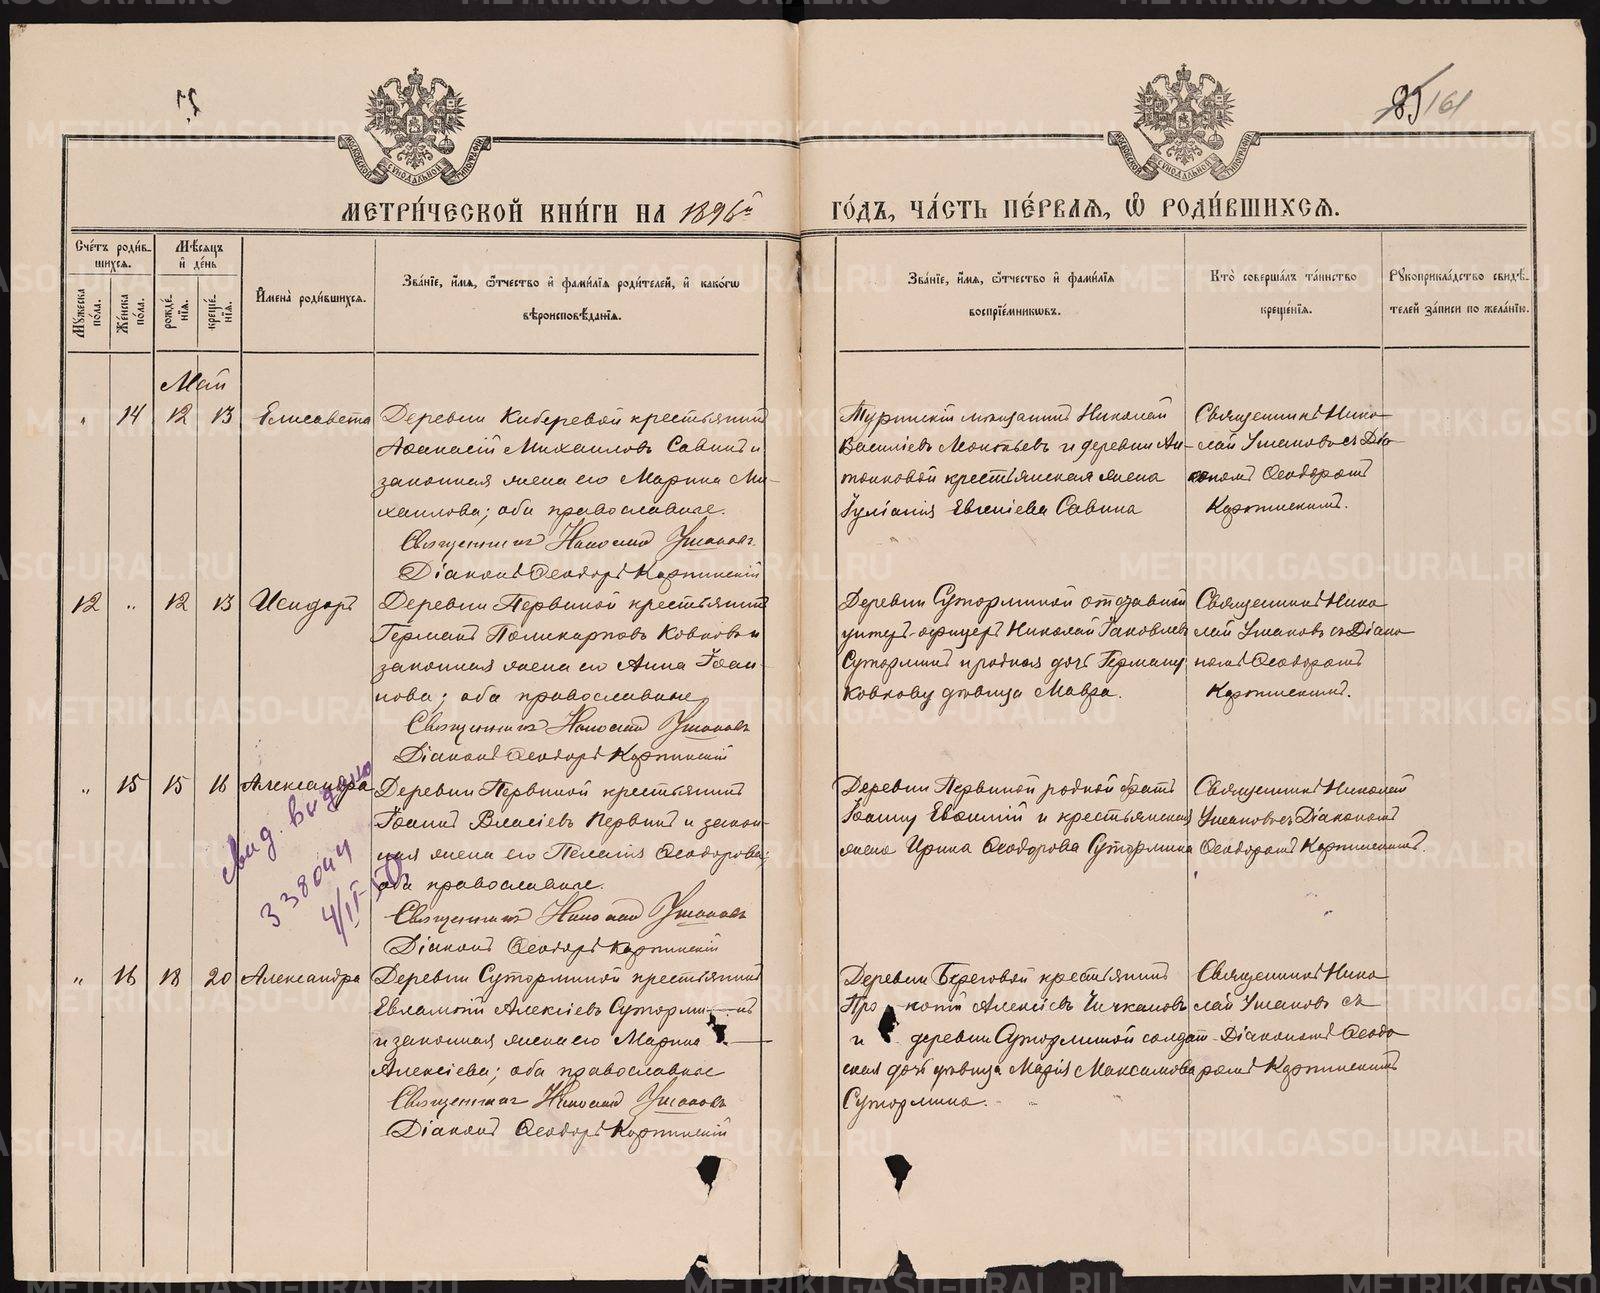 85 161
МЕТРИ́ЧЕСКОЙ КНИ́ГИ НА 1896й ГО́ДЪ, ЧА́СТЬ ПЕ́РВАЯ, Ѽ РОДИ́ВШИХСЯ.
Сче́тъ роди́в-
шихся.
Мѣ́сяцъ
и҆ де́нь
Мꙋ́жеска
по́ла.
Же́нска
по́ла.
рожде́-
нїя.
креще́-
нїя.
И҆мена̀ роди́вшихся.
Зва́нїе, и҆́мя, ѻ҆́тчество и҆ фами́лїя роди́телей, и҆ како́гѡ
вѣроисповѣ́данїя.
Зва́нїе, и҆́мя, ѻ҆́тчество и҆ фами́лїя
воспрїе́мникѡвъ.
Кто̀ соверша́лъ та́инство
креще́нїя.
Рꙋкоприкла́дство свидѣ́-
телей за́писи по жела́нїю.
Май
" 14 12 13 Елисавета
Деревни Киберевой крестьянинъ
Аѳанасій Михаиловъ Савинъ и
законная жена его Марина Ми-
хаилова; оба православные.
Священникъ Николай Ушаковъ
Діаконъ Ѳеодоръ Карпинскій
Туринскій мещанинъ Николай
Василіевъ Леонтьевъ и деревни Ан-
тоновой крестьянская жена
Іуліанія Евгеніева Савина
Священникъ Нико-
лай Ушаковъ съ Діа-
кономъ Ѳеодоромъ
Карпинскимъ.
12 " 12 13 Исидоръ
Деревни Первиной крестьянинъ
Германъ Поликарповъ Ковковъ и
законная жена его Анна Іоан-
нова; оба православные
Священникъ Николай Ушаковъ
Діаконъ Ѳеодоръ Карпинскій
Деревни Сутормину отставной
унтеръ-офицеръ Николай Іаковлевъ
Суторминъ и родная дочь Герману
Ковкову дѣвица Мавра.
Священникъ Нико-
лай Ушаковъ съ Діако-
номъ Ѳеодоромъ
Карпинскимъ.
" 15 15 16 Александра
свид. выдано
338044
4/II-50
Деревни Первиной крестьянинъ
Іоаннъ Власіевъ Первинъ и закон-
ная жена его Пелагія Ѳеодорова;
оба православные.
Священникъ Николай Ушаковъ
Діаконъ Ѳеодоръ Карпинскій
Деревни Первиной родной братъ
Іоанну Евѳимій и крестьянская
жена Ирина Ѳеодорова Сутормина
Священникъ Николай
Ушаковъ съ Діакономъ
Ѳеодоромъ Карпинскимъ.
" 16 18 20 Александра
Деревни Суторминой крестьянинъ
Евлампій Алексіевъ Суторминъ
и законная жена его Марина
Алексіева; оба православные
Священникъ Николай Ушаковъ
Діаконъ Ѳеодоръ Карпинскій
Деревни Береговой крестьянинъ
Прокопій Алексіевъ Чичкановъ
и деревни Суторминой солдат-
ская дочь дѣвица Марія Максимова
Сутормина.
Священникъ Нико-
лай Ушаковъ съ
Діакономъ Ѳеодо-
ромъ Карпинскимъ
METRIKI.GASO-URAL.RU